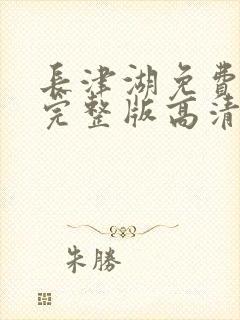 長津湖免費
完整版高清
朱勝